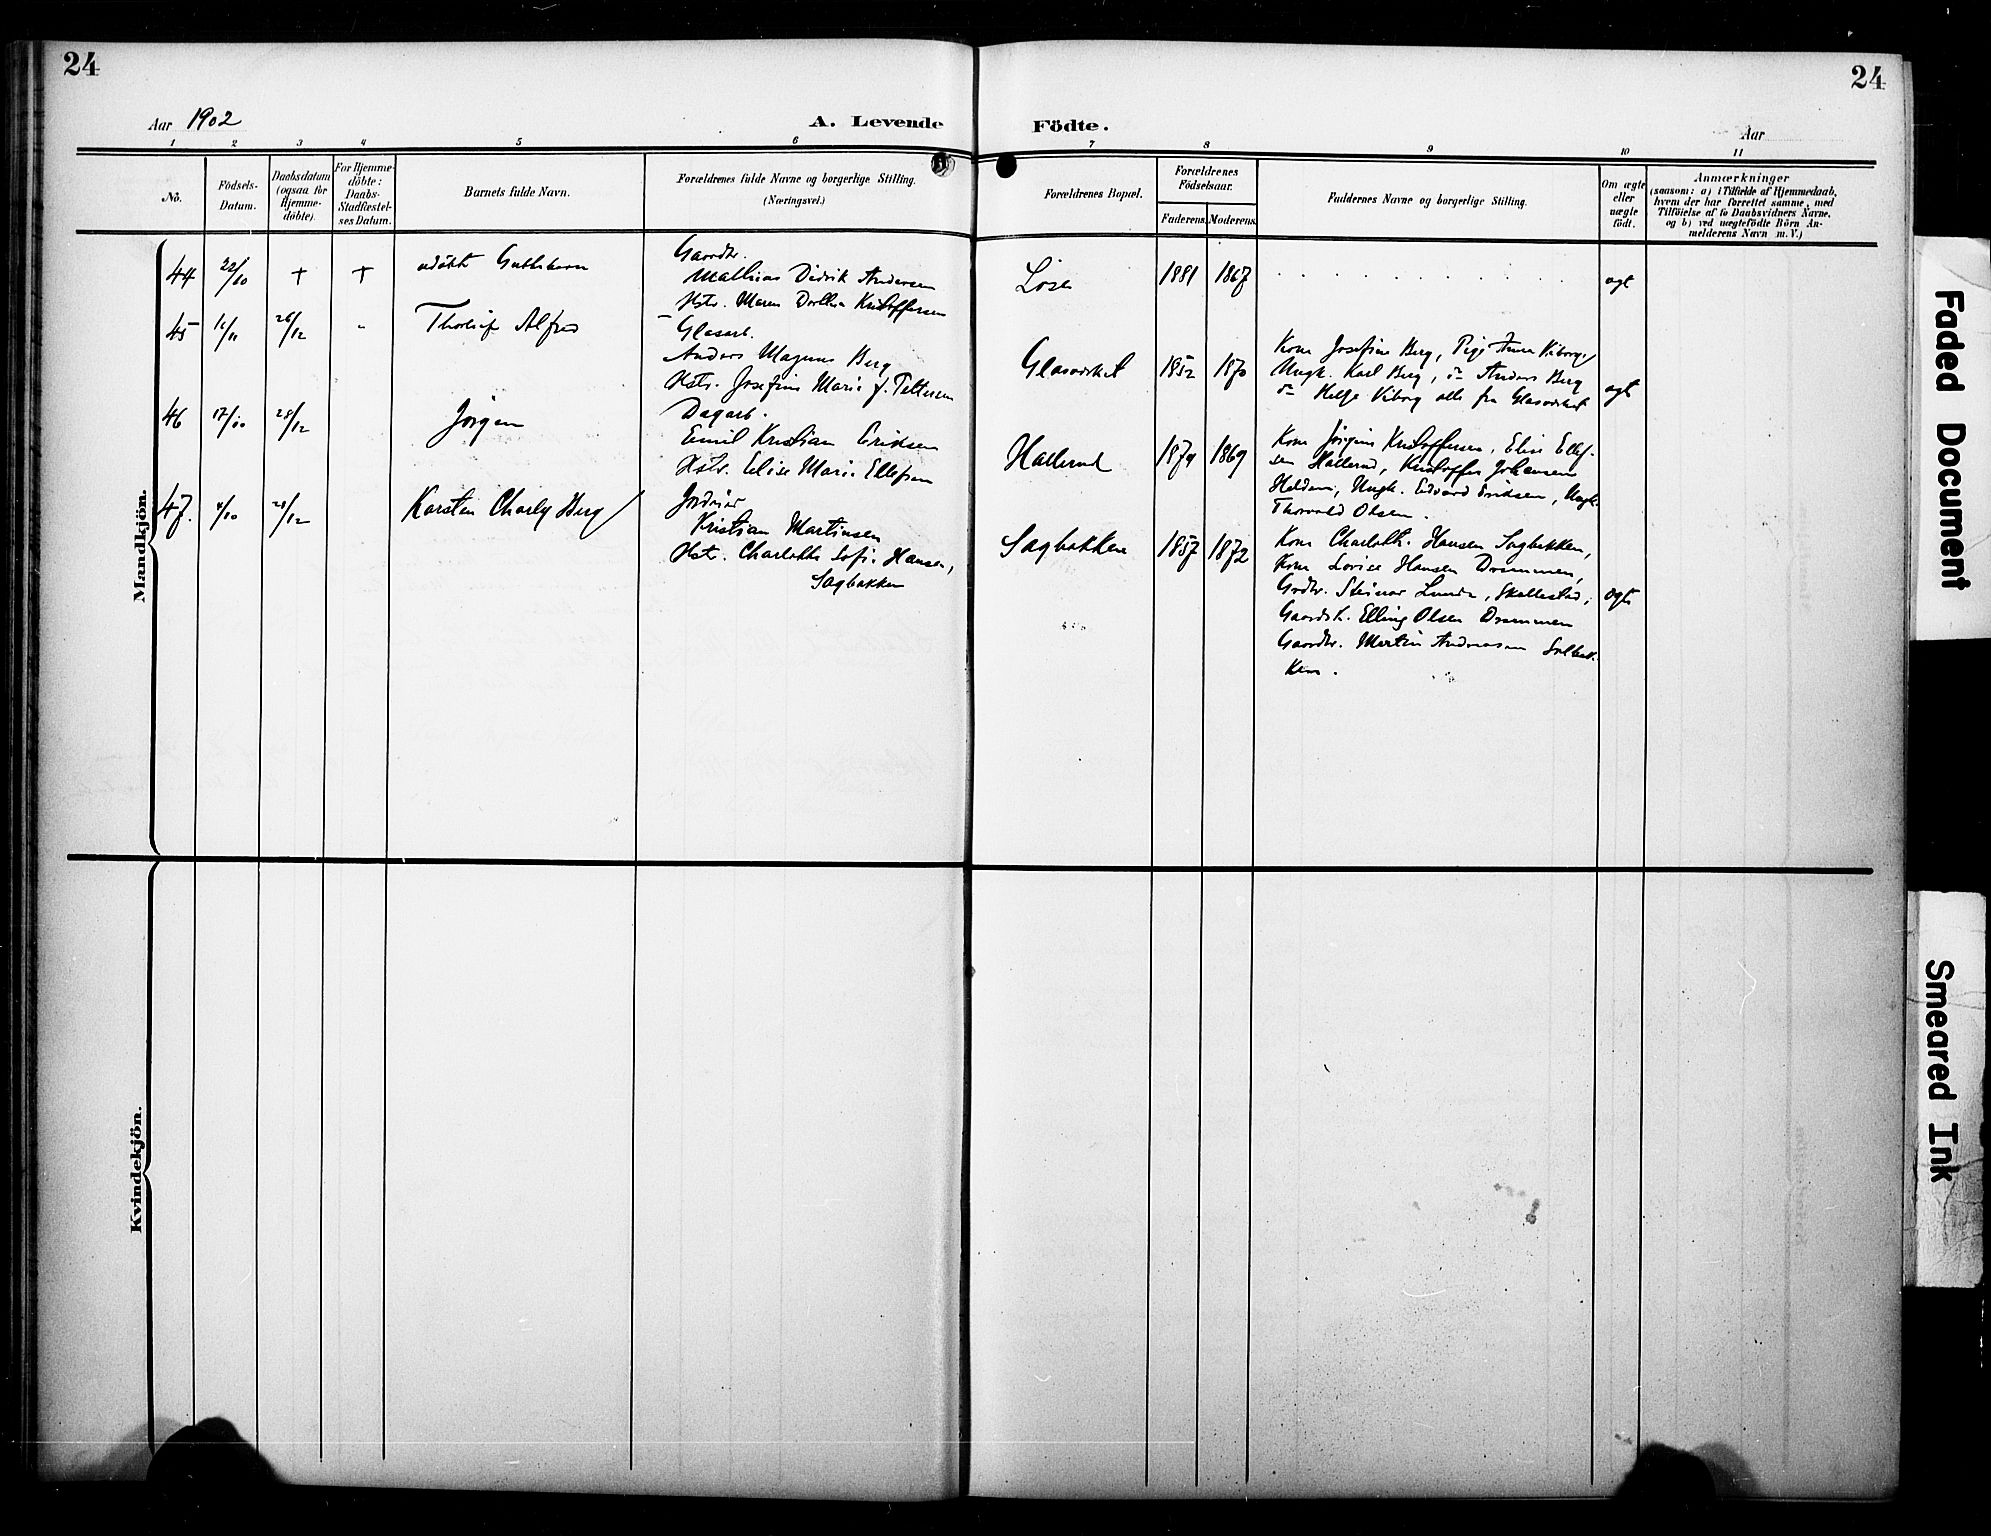 24
24
Aar 1902
A. Levende
Födte.
Aar
1 2 3 4 5 6 7 8 9 10 11
No.
Födsels-Datum.
Daabsdatum (ogsaa for Hjemme-döbte).
For Hjemme-döbte: Daabs-Stadfæstel-ses Datum.
Barnets fulde Navn.
Forældrenes fulde Navne og borgerlige Stilling.
(Næringsvei.)
Forældrenes Bopæl.
Forældrenes Födselsaar.
Faderens. Moderens.
Faddernes Navne og borgerlige Stilling.
Om ægte eller uægte födt.
Anmærkninger
(saasom: a) i Tilfælde af Hjemmedaab,
hvem der har forrettet samme, med
Tilföielse af to Daabsvidners Navne,
og b) ved uægtefödte Börn An-
melderens Navn m. V.)
Mandkjön.
44 22/10 + + udöbt Guttebarn
Gaardbr.
Mathias Didrik Andersen
Hstr. Maren Dorthea Kristoffersen
1881 1867
ægt
45 11/11 26/12 Thorleif Alfred
Glasarb.
Anders Magnus Berg
Hstr. Josefine Marie f. Pettersen
Glasværket 1852 1870
Kone Josefine Berg, Pige Anna Viborg,
Ungk. Karl Berg, do Anders Berg
do Helge Viborg alle fra Glasværket
ægt
46 17/10 28/12 Jörgen
Dagarb.
Emil Kristian Eriksen
Hstr. Elise Marie Ellefsen
Hallerud 1874 1869
Kone Jörgine Kristoffersen, Elise Ellef-
sen Hallerud, Kristoffer Johansen
Ungk. Edvard Eriksen, Ungk.
Thorvald Olsen.
47. 4/10 28/12 Karsten Charly Berg
Kristian Martinsen
Hstr. Charlotte Sofie Hansen,
Sagbakken
Sagbakken 1857 1872
Kone Charlotte Hansen Sagbakken,
Kone Lovise Hansen Drammen,
Grdbr. Steinar Lunde, Skallestad,
Gaardsk. Elling Olsen Drammen
Gaardbr. Martin Andreasen Solbak-
ken.
ægte
Kvindekjön.
Faded Document
Smeared Ink